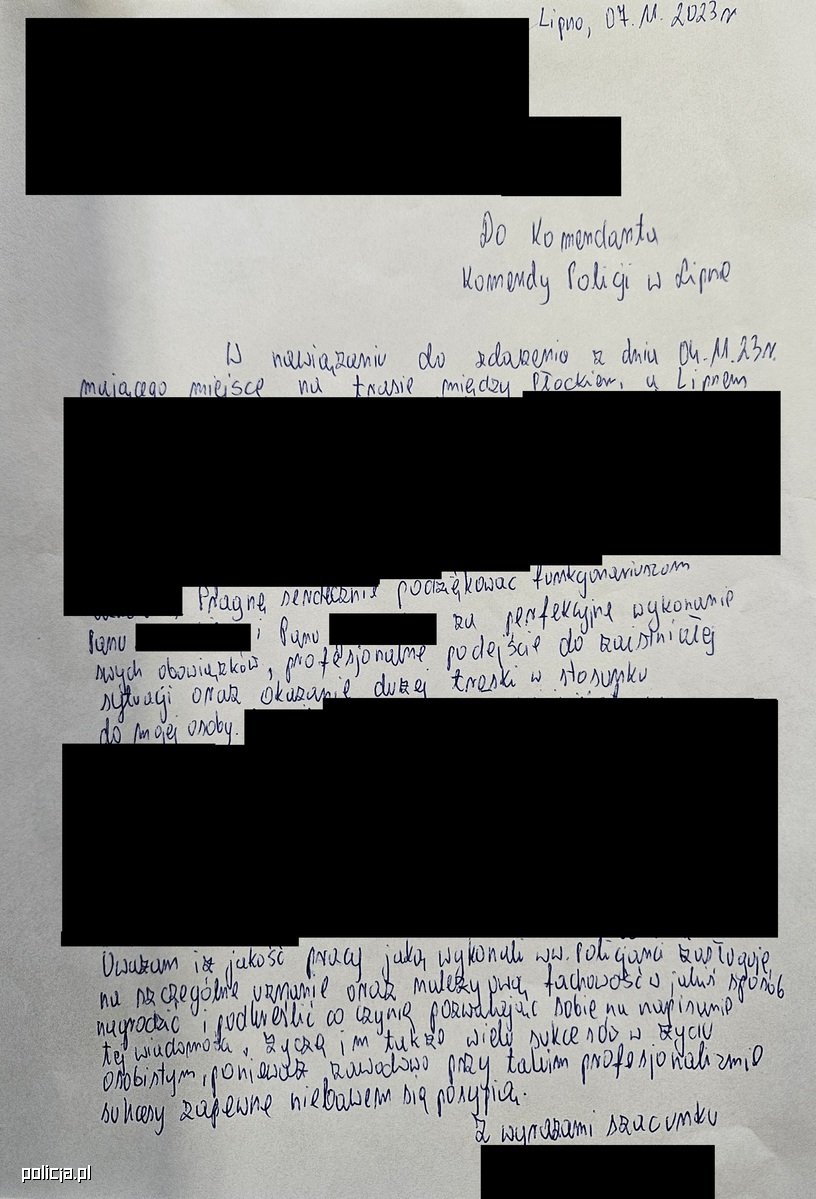 Lipno, 07.11.2023r
Do Komendanta
Komendy Policji w Lipnie
W nawiązaniu do zdarzenia z dnia 04.11.23r.
mającego miejsce na trasie między Płockiem, a Lipnem
Pragnę serdecznie podziękować funkcjonariuszom
Panu i Panu za perfekcyjne wykonanie
swych obowiązków, profesjonalne podejście do zaistniałej
sytuacji oraz okazanie dużej troski w stosunku
do mojej osoby.
Uważam iż jakość pracy jaką wykonali ww. Policjanci zasługuje
na szczególne uznanie oraz należy ową fachowość w jakiś sposób
nagrodzić i podkreślić co czynię pozwalając sobie na napisanie
tej wiadomości, życzę im także wielu sukcesów w życiu
osobistym, ponieważ zawodowo przy takim profesjonalizmie
sukcesy zapewne niebawem się posypią.
Z wyrazami szacunku
policja.pl